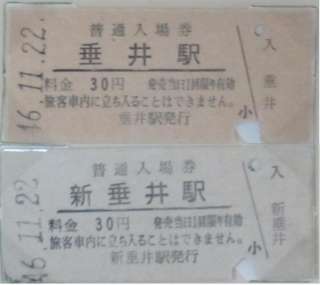 46.11.22.
普通入場券
垂井駅
料金 30円 発売当日1回限り有効
旅客車内に立ち入ることはできません。
垂井駅発行
入
垂井
小
46.11.22
普通入場券
新垂井駅
料金 30円 発売当日1回限り有効
旅客車内に立ち入ることはできません。
新垂井駅発行
入
新垂井
小